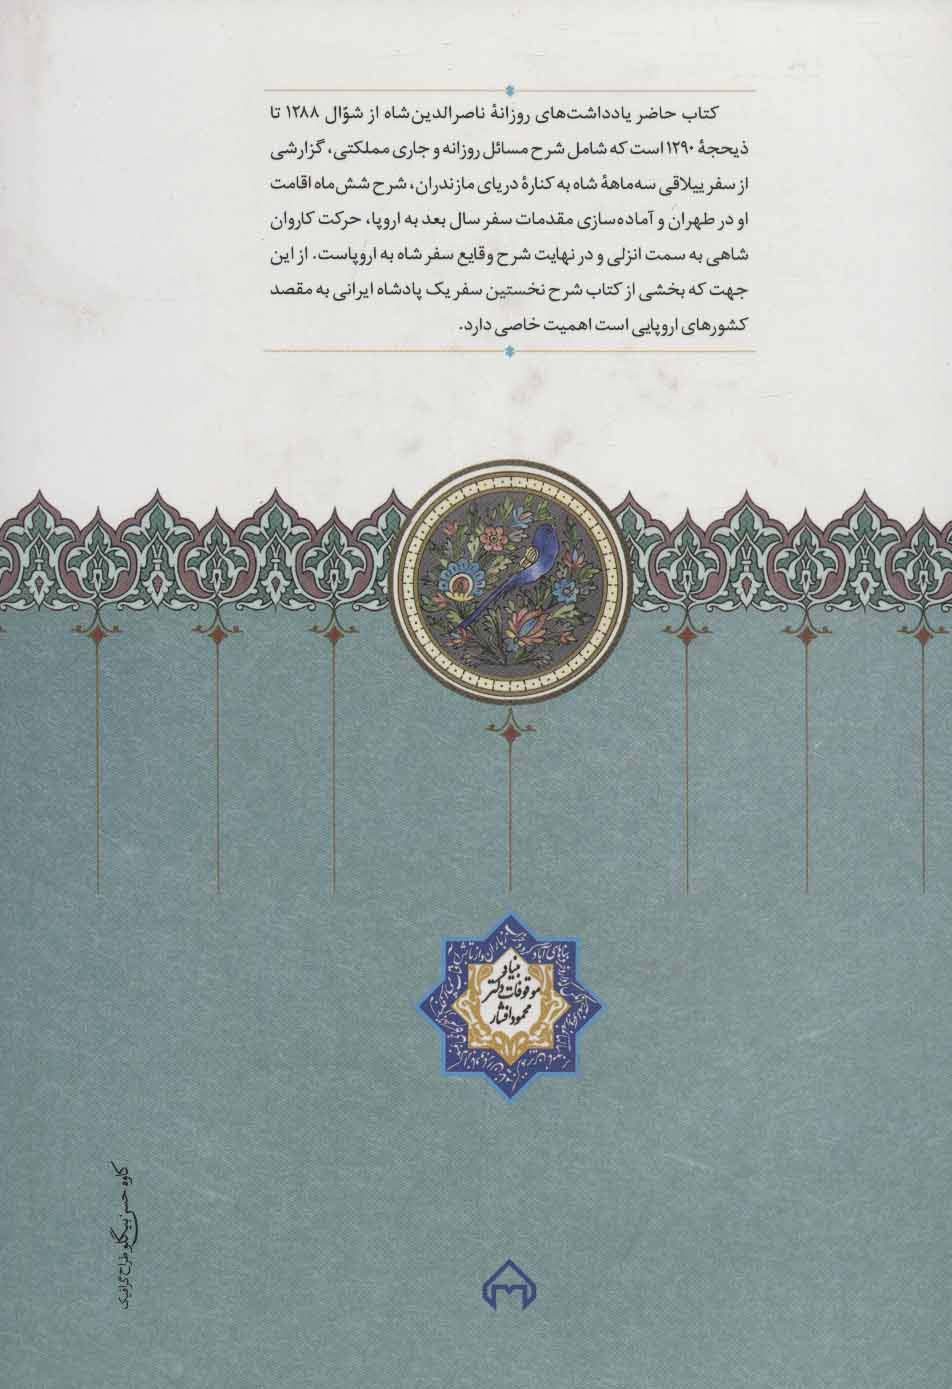 کتاب حاضر یادداشت‌های روزانهٔ ناصرالدین‌شاه از شوّال ۱۲۸۸ تا
ذیحجهٔ ۱۲۹۰ است که شامل شرح مسائل روزانه و جاری مملکتی، گزارشی
از سفر ییلاقی سه‌ماههٔ شاه به کنارهٔ دریای مازندران، شرح شش‌ماه اقامت
او در طهران و آماده‌سازی مقدمات سفر سال بعد به اروپا، حرکت کاروان
شاهی به سمت انزلی و در نهایت شرح وقایع سفر شاه به اروپاست. از این
جهت که بخشی از کتاب شرح نخستین سفر یک پادشاه ایرانی به مقصد
کشورهای اروپایی است اهمیت خاصی دارد.
بنیاد
موقوفات دکتر
محمود افشار
کاوه حسن‌بیگلو طراح گرافیک